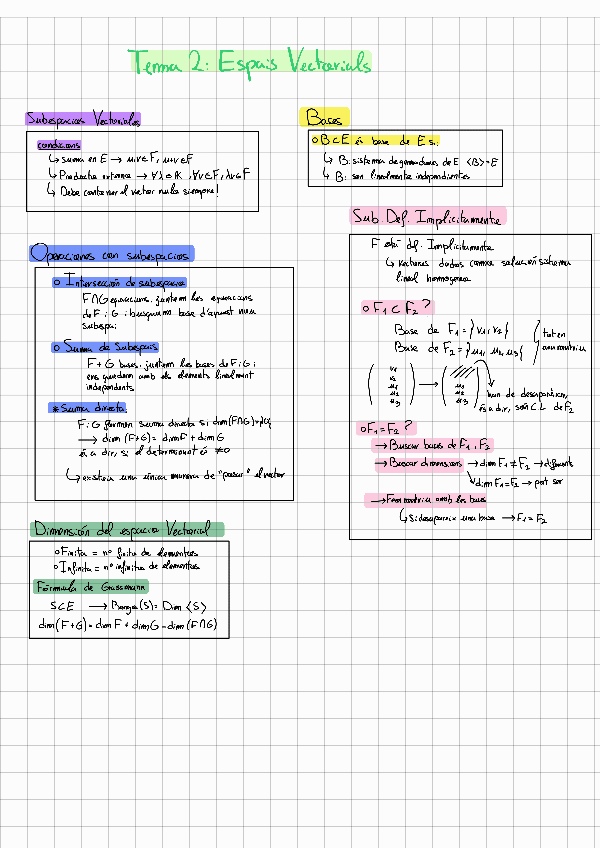 Tema 2: Espais Vectorials
Subespacios Vectoriales
condicions
↳ suma en E → u,v ∈ F, u+v ∈ F
↳ Producte externa → ∀λ ∈ K, ∀v ∈ F, λv ∈ F
↳ Debe contener el vector nulo siempre!
Operaciones con subespacios
o Intersección de subespacios
F∩G equacions, juntem les equacions
de F i G i busquem base d'aquest nou
subespai
o Suma de Subespais
F + G bases, juntem les bases de F i G i
ens quedem amb els elements linealment
independents
* Suma directa
F i G formen suma directa si dim(F∩G)=
→ dim (F+G) = dimF + dimG
és a dir, si el determinant és ≠0
↳ existeix una única manera de "posar" el vector
Dimensión del espacio Vectorial
o Finita = nº finito de elementos
o Infinita = nº infinito de elementos
Fórmula de Grassmann
S⊂E → Rango(S) = Dim <S>
dim(F+G) = dim F + dim G - dim (F∩G)
Bases
o B⊂E és base de E si:
↳ B: sistema de generadores de E <B> = E
↳ B: son linealmente independientes
Sub. Def. Implicitamente
F està def. Implicitamente
↳ vectores dados como solución sistema
lineal homogenea
o F1 ⊂ F2 ?
Base de F1 = {v1, v2}
Base de F2 = {u1, u2, u3}
tot en
una matriu
v1
v2
u1
u2
u3
→
u1
u2
u3
han de desaparèixer,
és a dir, són C.L de F2
o F1 = F2 ?
→ Buscar bases de F1, F2
→ Buscar dimensions → dim F1 ≠ F2 → diferents
↘ dim F1 = F2 → pot ser
→ Fem matriu amb les bases
↳ Si desapareix una base → F1 = F2